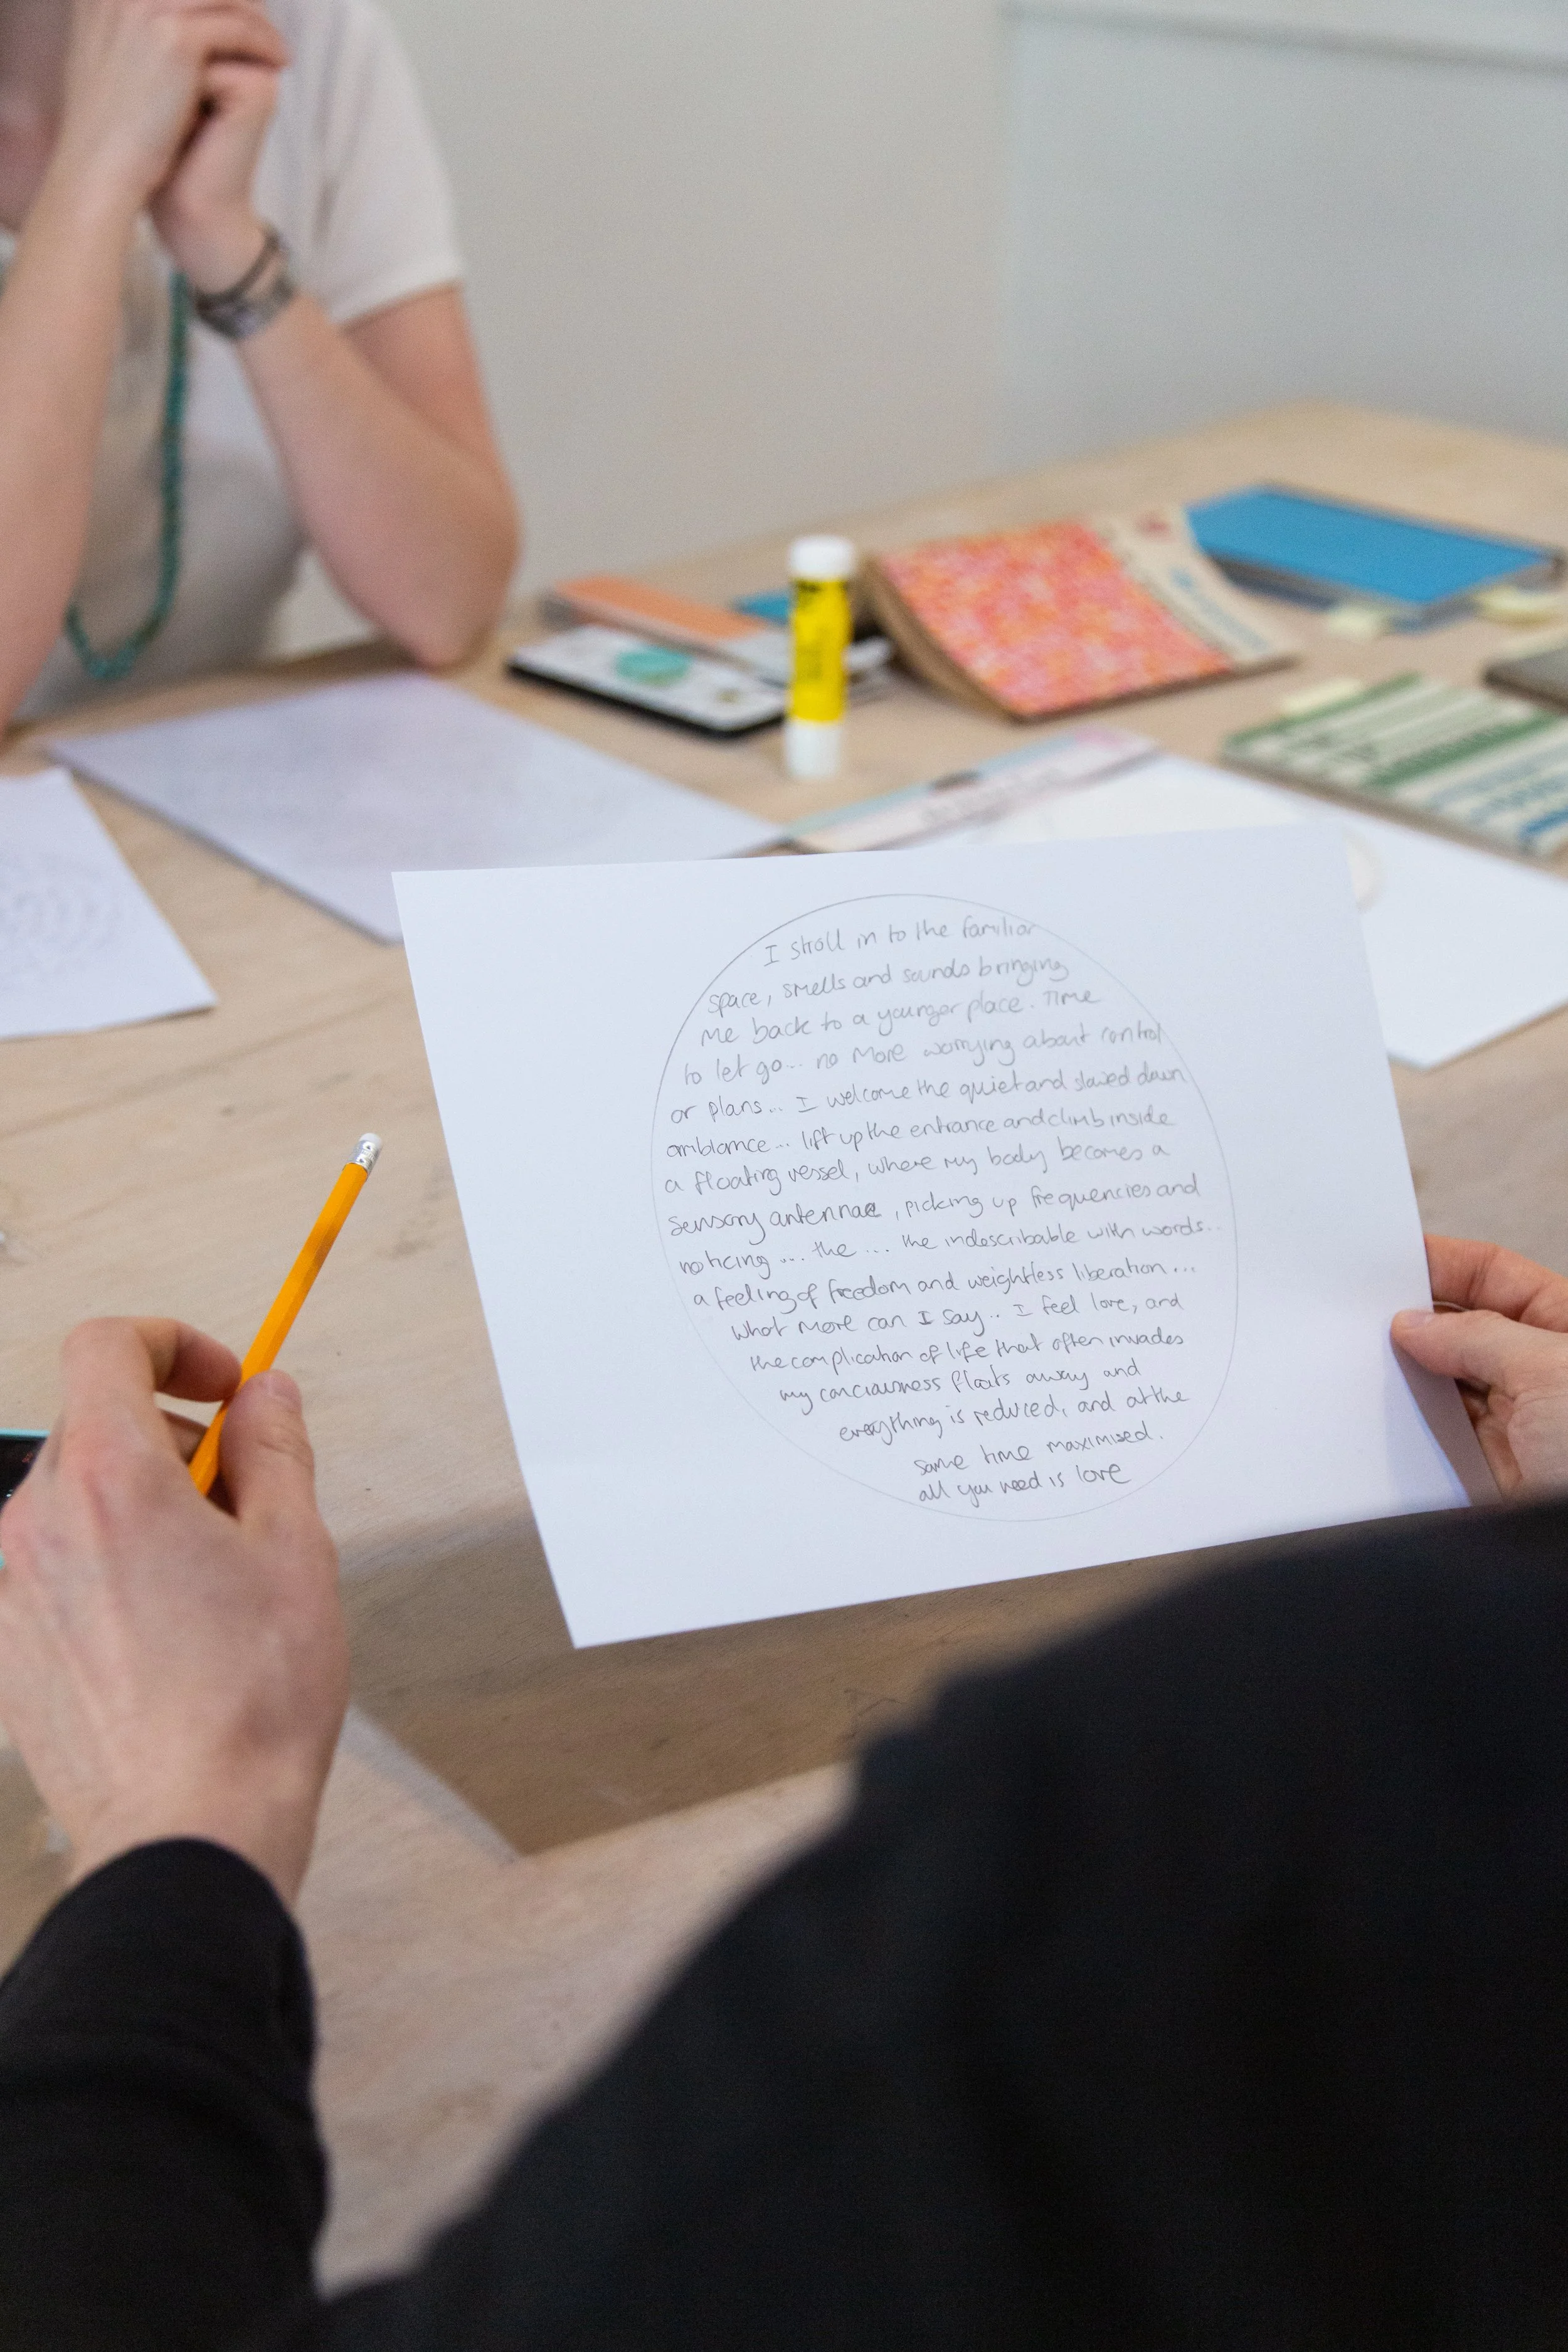 I stroll in to the familiar
space, smells and sounds bringing
me back to a younger place. Time
to let go... no more worrying about control
or plans... I welcome the quiet and slowed down
ambiance... lift up the entrance and climb inside
a floating vessel, where my body becomes a
sensory antennae, picking up frequencies and
noticing .... the ... the indescribable with words..
a feeling of freedom and weightless liberation...
what more can I say.. I feel love, and
the complication of life that often invades
my conciousness floats away and
everything is reduced, and at the
same time maximised.
all you need is love